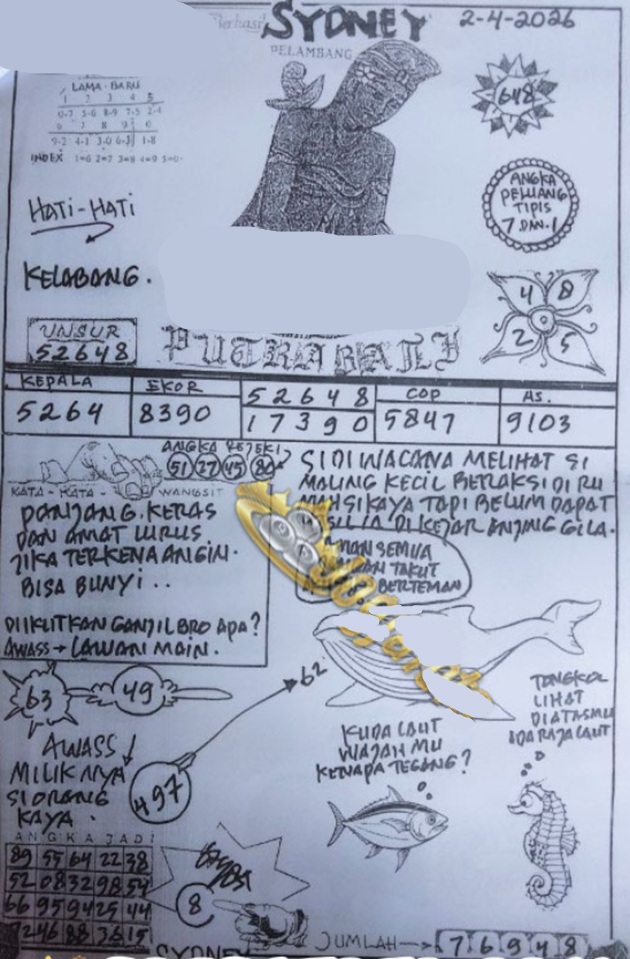 SYDNEY
2-4-2026
PELAMBANG
LAMA - BARU
1 2 3 4 5
0-7 5-6 8-9 7-5 2-4
6 7 8 9 0
9-2 4-1 3-0 6-3 1-8
INDEX 1=6 2=7 3=8 4=9 5=0
648
ANGKA
PELUANG
TIPIS
7 DAN 1
HATI-HATI
KELABANG.
4 8
2 5
UNSUR
52648
PUTRA BALI
KEPALA
EKOR
5 2 6 4 8
COP
AS.
5264
8390
1 7 3 9 0
5847
9103
ANGKA REJEKI?
51 27 45 80
KATA - KATA - WANGSIT
PANJANG. KERAS
DAN AMAT LURUS
JIKA TERKENA ANGIN.
BISA BUNYI ..
DIIKUTKAN GANJIL BRO APA?
AWASS → LAWAN MAIN.
SIDIWACANA MELIHAT SI
MALING KECIL BERAKSI DI RU
MAH SIKAYA TAPI BELUM DAPAT
DI KEJAR ANJING GILA.
SEMUA
TAKUT
BERTEMAN
63
49
62
AWASS
MILIKNYA
SIORANG
KAYA.
497
KUDA LAUT
WAJAH MU
KENAPA TEGANG?
TONGKOL
LIHAT
DIATASMU
ADA RAJA LAUT
ANGKA JADI
89 55 64 22 38
52 08 32 98 54
66 95 94 25 44
72 46 88 36 15
8
SYDNEY
JUMLAH → 7 6 9 4 8